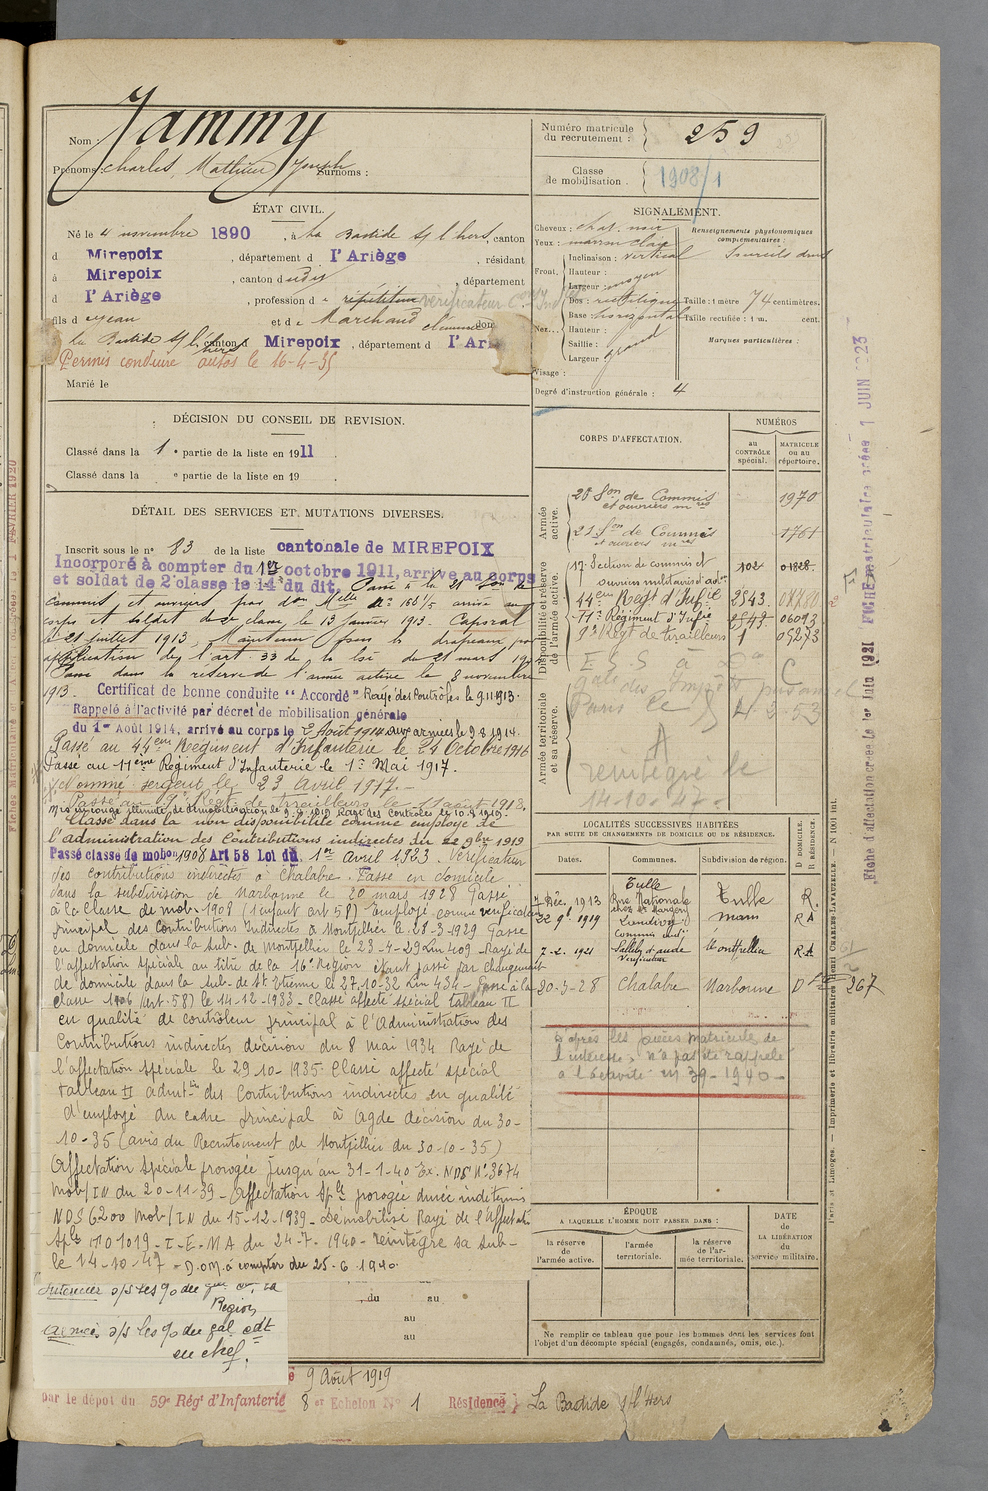 Nom Jammy
Prénoms : Charles, Mathieu Joseph Surnoms :
Numéro matricule du recrutement : 259
Classe de mobilisation. 1908/1
ÉTAT CIVIL.
Né le 4 novembre 1890, à La Bastide s/ l'hers, canton
d Mirepoix, département d l'Ariège, résidant
à Mirepoix, canton dudit département
d l'Ariège, profession de répétiteur vérificateur
fils d e Jean et de Marchand Clémence dom
La Bastide s/ l'hers canton d Mirepoix, département d l'Ari
Permis conduire autos le 16-4-35
Marié le
SIGNALEMENT.
Cheveux : chat. noir
Yeux : marron clair
Front. Inclinaison : vertical
Hauteur :
Largeur : moyen
Nez. Dos : rectiligne
Base : horizontal
Hauteur :
Saillie :
Largeur grand
Visage :
Renseignements physionomiques complémentaires :
Sourcils droits
Taille : 1 mètre 74 centimètres.
Taille rectifiée : 1 m. cent.
Marques particulières :
Degré d'instruction générale : 4
DÉCISION DU CONSEIL DE REVISION.
Classé dans la 1e partie de la liste en 1911
Classé dans la e partie de la liste en 19
DÉTAIL DES SERVICES ET MUTATIONS DIVERSES.
Inscrit sous le n° 83 de la liste cantonale de MIREPOIX
Incorporé à compter du 1er octobre 1911, arrivé au corps
et soldat de 2e classe le 14 du dit. Passé à la 21 Son de
commis et ouvriers par don Melle n° 156 1/5 arrivé au
corps et soldat de 2e classe le 13 janvier 1913. Caporal
le 21 juillet 1913. Maintenu sous les drapeaux par
application de l'art. 33 de la loi du 21 mars 19
Passé dans la réserve de l'armée active le 8 novembre
1913. Certificat de bonne conduite "Accordé" Rayé des Contrôles le 9.11.1913.
Rappelé à l'activité par décret de mobilisation générale
du 1er Août 1914, arrivé au corps le 2 Août 1914 aux armées le 9.8.1914.
Passé au 44eme Régiment d'Infanterie le 24 Octobre 1916
Passé au 11ème Régiment d'Infanterie le 1er Mai 1917.
Nommé sergent le 23 Avril 1917.
Passé au 9e Régt de tirailleurs le 17 août 1918.
Classé dans la non disponibilité comme employé de
l'administration des Contributions indirectes du 22 9bre 1919
Passé classe de mobon 1908 Art 58 Loi du 1er Avril 1923. Vérificateur
des contributions indirectes à Chalabre. Passé en domicile
dans la subdivision de Narbonne le 20 mars 1928 Passé
à la classe de mob. 1908 (1 enfant art 58) employé comme vérificateur
principal des Contributions Indirectes à Montpellier le 28-3-1929 Passé
en domicile dans la sub. de Montpellier le 23-4-29 Lm 409 - Rayé de
l'affectation spéciale au titre de la 16e Région étant passé par changement
de domicile dans la sub. de St Etienne le 27.10-32 Lm 434 - Passé à la
classe 1906 (art. 58) le 14-12-1933 - Classé affecté spécial tableau II
en qualité de contrôleur principal à l'Administration des
Contributions indirectes décision du 8 mai 1934 Rayé de
l'affectation spéciale le 29-10-1935 Classé affecté spécial
tableau II admt. des Contributions indirectes en qualité
d'employé du cadre principal à Agde décision du 30-
10-35 (avis du Recrutement de Montpellier du 30-10-35)
Affectation Spéciale prorogée jusqu'au 31-1-40 Ex. NDS N° 3674
Mob/IN du 20-11-39 - Affectation Sple prorogée durée indéterminée
NDS 6200 Mob/IN du 15-12-1939 - Démobilisé Rayé de l'Affectat.
Sple ITO 1019-I-E.M A du 24-7-1940 - réintègre sa sub-
le 14-10-47 - D.O.M. à compter du 25-6-1940.
Région
Armée o/s les go du gal cdt
en chef.
du au
au
au
CORPS D'AFFECTATION.
NUMÉROS
au CONTRÔLE spécial.
MATRICULE ou au répertoire.
Armée active.
20 Son de Commis et ouvriers mres 1970
21 Son de Commis et ouvriers mres 1761
Disponibilité et réserve de l'armée active.
17e Section de commis et ouvriers militaires d'adon 102 01828
44eme Régt d'Infie 2543. 07780
11e Régiment d'Infie 2543. 06093
9e Régt de tirailleurs 1 05273
Armée territoriale et sa réserve.
des Impôts
Paris le 4.2.53
A
réintégré le
14-10-47.
LOCALITÉS SUCCESSIVES HABITÉES
PAR SUITE DE CHANGEMENTS DE DOMICILE OU DE RÉSIDENCE.
Dates. Communes. Subdivision de région. D DOMICILE. R RÉSIDENCE.
7 Déc. 1913 Tulle Rue Nationale Tulle R.
22 9b. 1919 Commis indj R A
7-2-1921 Vérificateur Montpellier R A
20-3-28 Chalabre Narbonne D 267
D'après les pièces matricules de
l'intéressé, n'a pas été rappelé
à l'activité en 39-1940 -
ÉPOQUE
A LAQUELLE L'HOMME DOIT PASSER DANS :
la réserve de l'armée active.
l'armée territoriale.
la réserve de l'armée territoriale.
DATE de LA LIBÉRATION du service militaire.
Ne remplir ce tableau que pour les hommes dont les services font
l'objet d'un décompte spécial (engagés, condamnés, omis, etc.).
é 9 Août 1919
par le dépôt du 59e Régt d'Infanterie 8 et Echelon N° 1 Résidence } La Bastide s/ l'Hers
Fiche d'affectation créée le 1er Juin 1921
FICHE matriculaire créée 1 JUIN 1923
Paris et Limoges. — Imprimerie et librairie militaires Henri CHARLES-LAVAUZELLE. — N° 1001 int.